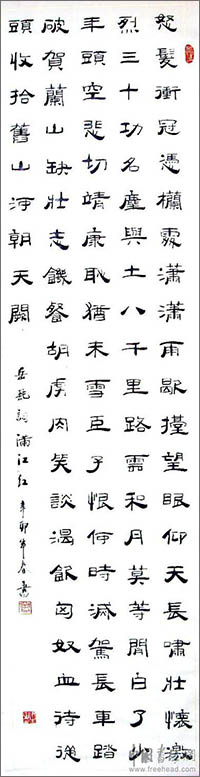 怒髮衝冠憑欄處瀟瀟雨歇擡望眼仰天長嘯壯懷激
烈三十功名塵與土八千里路雲和月莫等閒白了少
年頭空悲切靖康恥猶未雪臣子恨何時滅駕長車踏
破賀蘭山缺壯志饑餐胡虜肉笑談渴飲匈奴血待從
頭收拾舊山河朝天闕
岳飛詞滿江紅 辛卯年春書
www.freehead.com